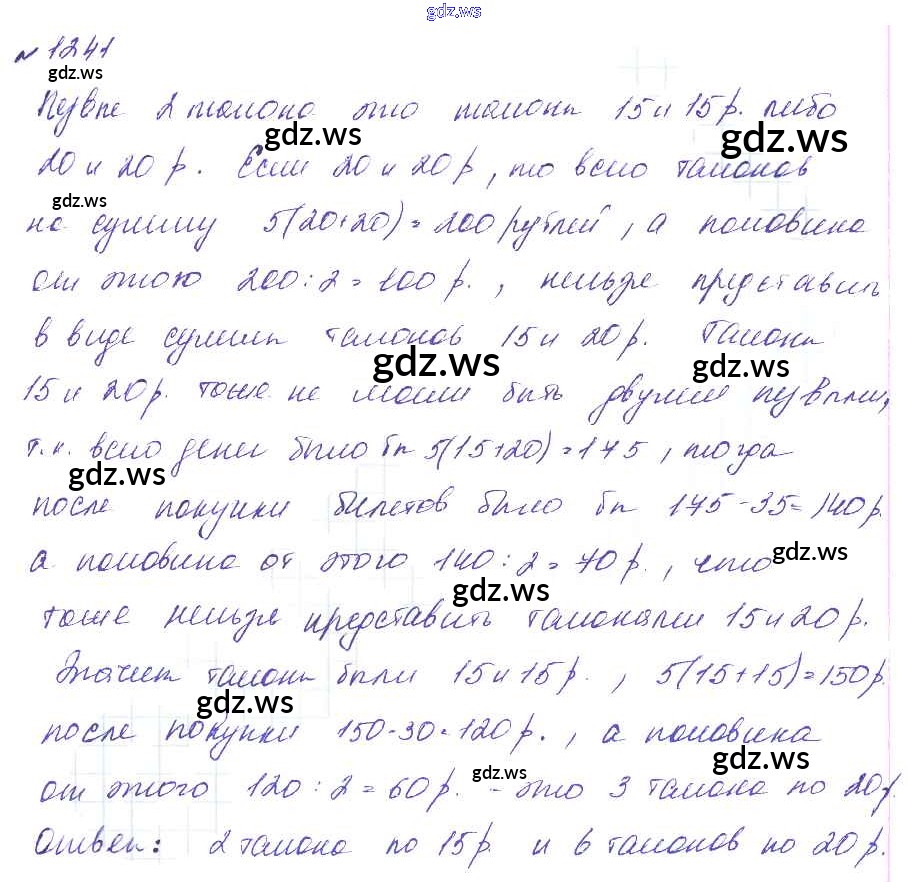 gdz.ws
№ 1241
gdz.ws
Первые 2 талона это талоны 15 и 15 р. либо
gdz.ws gdz.ws
20 и 20 р. Если 20 и 20 р, то всего талонов
gdz.ws
на сумму 5(20+20) = 200 рублей, а половина
от этого 200 : 2 = 100 р., нельзя представить
в виде суммы талонов 15 и 20 р. Талоны
gdz.ws gdz.ws
15 и 20 р. тоже не могли быть двумя первыми,
т.к. всего денег было бы 5(15+20) = 175, тогда
gdz.ws
после покупки билетов было бы 175 - 35 = 140 р.
а половина от этого 140 : 2 = 70 р., что
gdz.ws
gdz.ws
тоже нельзя представить талонами 15 и 20 р.
Значит талоны были 15 и 15 р., 5(15+15) = 150 р.
gdz.ws
после покупки 150 - 30 = 120 р., а половина
gdz.ws
gdz.ws
от этого 120 : 2 = 60 р. - это 3 талона по 20 р.
Ответ: 2 талона по 15 р и 6 талонов по 20 р.